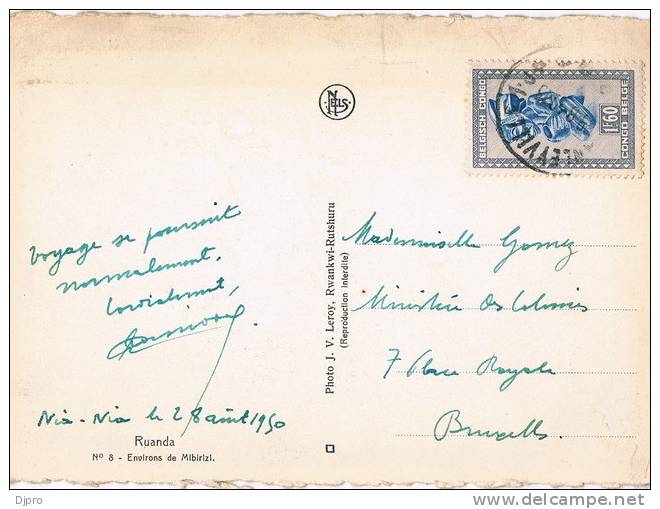 NELS
BELGISCH CONGO
1F60
CONGO BELGE
voyage se poursuit
normalement.
Cordialement,
Nia-Nia le 28 août 1950
Ruanda
Nº 8 - Environs de Mibirizi.
Photo J. V. Leroy, Rwankwi-Rutshuru
(Reproduction interdite)
Mademoiselle Gomez
Ministère des Colonies
7 Place Royale
Bruxelles.
Djpro
delcampe.net